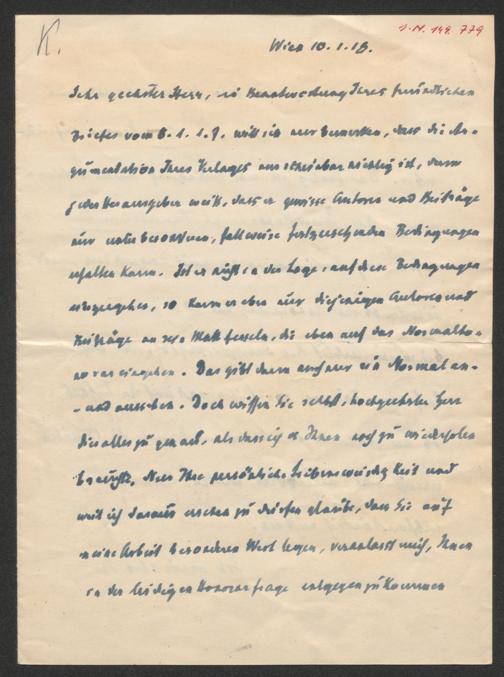 K.
I.N. 149.779
Wien 10.1.18.
Sehr geehrter Herr, in Beantwortung Ihres freundlichen
Briefes vom 8.1.l.J. will ich nur bemerken, dass die Ar-
gumentation Ihres Verlages nur scheinbar richtig ist, denn
jeder Herausgeber weiß, dass er gewisse Autoren und Beiträge
nur unter besonderen, fallweise festzusetzenden Bedingungen
erhalten kann. Ist er nicht in der Lage, auf diese Bedingungen
einzugehen, so kann er eben nur diejenigen Autoren und
Beiträge an sein Blatt fesseln, die eben auf das Normalho-
norar eingehen. Das gibt dann auch nur ein Normal an-
- und aussehen. Doch wissen Sie selbst, hochgeehrter Herr
dies alles zu genau, als dass ich es Ihnen noch zu wiederholen
brauchte. Nur Ihre persönliche Liebenswürdigkeit und
weil ich daraus ersehen zu dürfen glaube, dass Sie auf
meine Arbeit besonderen Wert legen, veranlasst mich, Ihnen
in der leidigen Honorarfrage entgegenzukommen